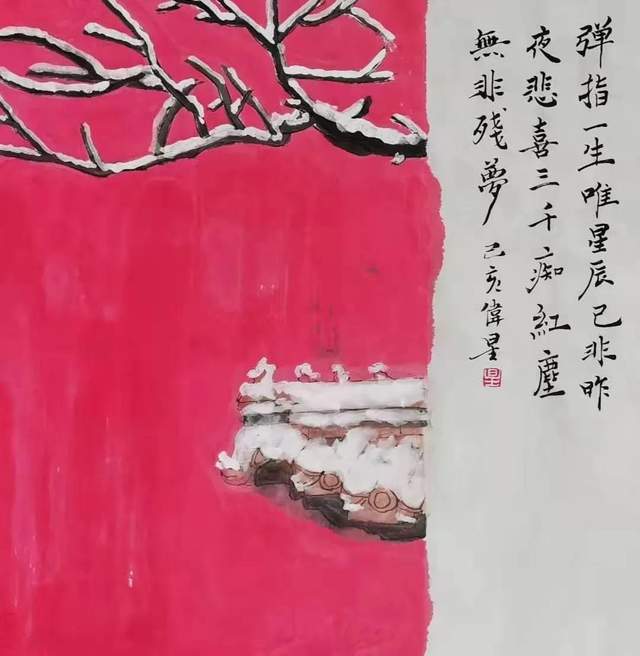 弹指一生唯星辰已非昨
夜悲喜三千痴紅塵
無非残夢 己亥偉星
星